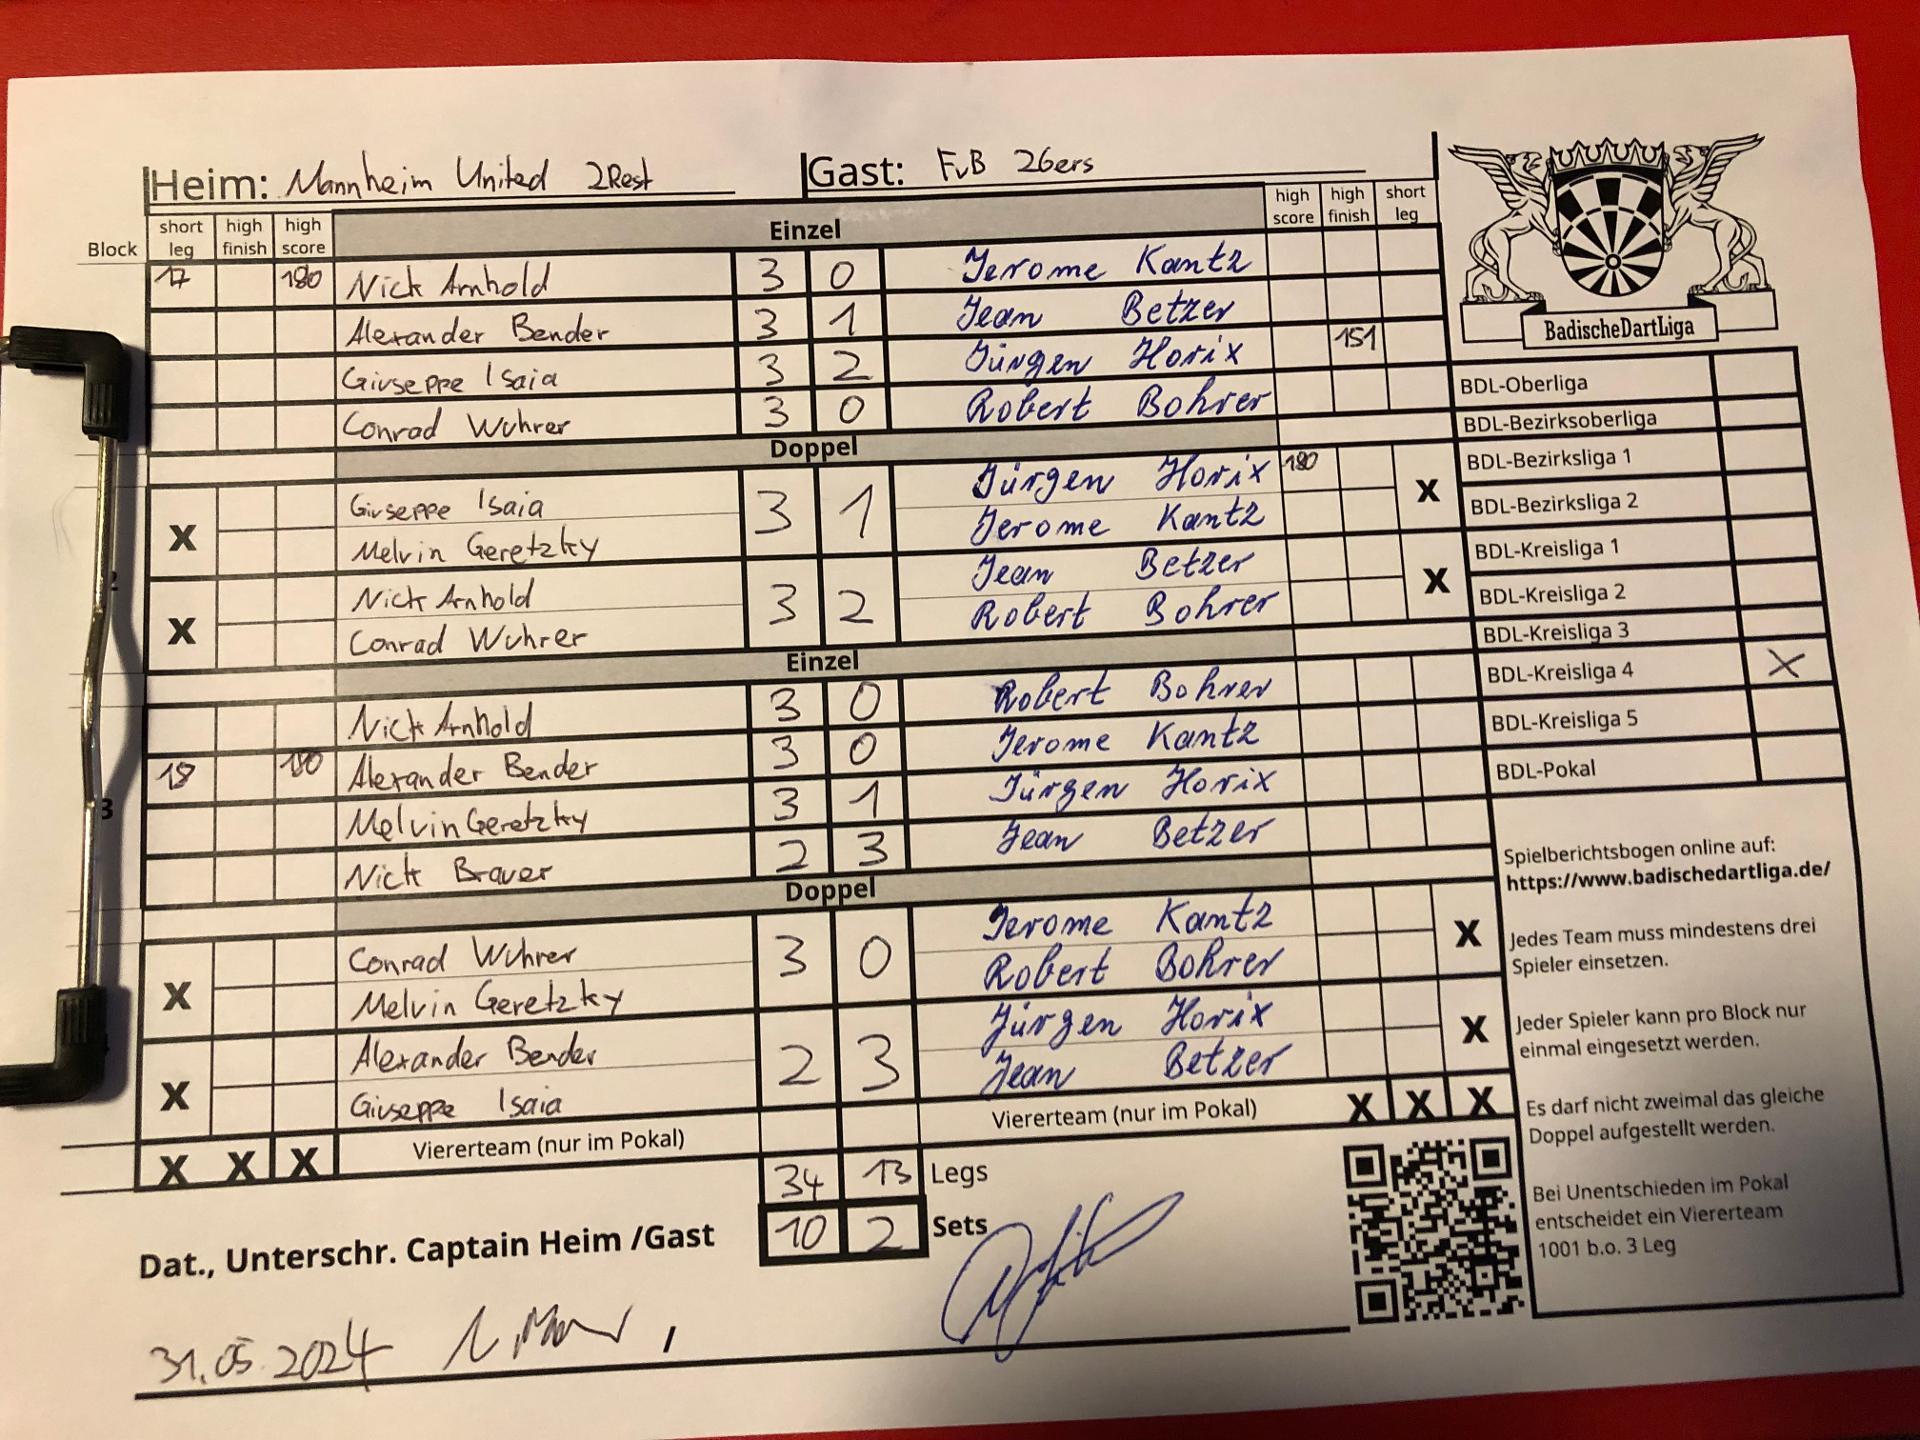 Heim: Mannheim United 2Rest Gast: FvB 26ers
Block short leg high finish high score Einzel high score high finish short leg
17 180 Nick Arnhold 3 0 Jerome Kantz
Alexander Bender 3 1 Jean Betzer
Giuseppe Isaia 3 2 Jürgen Horix 151
Conrad Wuhrer 3 0 Robert Bohrer
Doppel
Giuseppe Isaia 3 1 Jürgen Horix 180
X X
Melvin Geretzky Jerome Kantz
Nick Arnhold 3 2 Jean Betzer
X X
Conrad Wuhrer Robert Bohrer
Einzel
Nick Arnhold 3 0 Robert Bohrer
Alexander Bender 3 0 Jerome Kantz
3 Melvin Geretzky 3 1 Jürgen Horix
Nick Brauer 2 3 Jean Betzer
Doppel
Conrad Wuhrer 3 0 Jerome Kantz
X X
Melvin Geretzky Robert Bohrer
Alexander Bender 2 3 Jürgen Horix
X X
Giuseppe Isaia Jean Betzer
X X X Viererteam (nur im Pokal) Viererteam (nur im Pokal) X X X
34 13 Legs
10 2 Sets
Dat., Unterschr. Captain Heim /Gast
31.05.2024
BadischeDartLiga
BDL-Oberliga
BDL-Bezirksoberliga
BDL-Bezirksliga 1
BDL-Bezirksliga 2
BDL-Kreisliga 1
BDL-Kreisliga 2
BDL-Kreisliga 3
BDL-Kreisliga 4 X
BDL-Kreisliga 5
BDL-Pokal
Spielberichtsbogen online auf:
https://www.badischedartliga.de/
Jedes Team muss mindestens drei
Spieler einsetzen.
Jeder Spieler kann pro Block nur
einmal eingesetzt werden.
Es darf nicht zweimal das gleiche
Doppel aufgestellt werden.
Bei Unentschieden im Pokal
entscheidet ein Viererteam
1001 b.o. 3 Leg